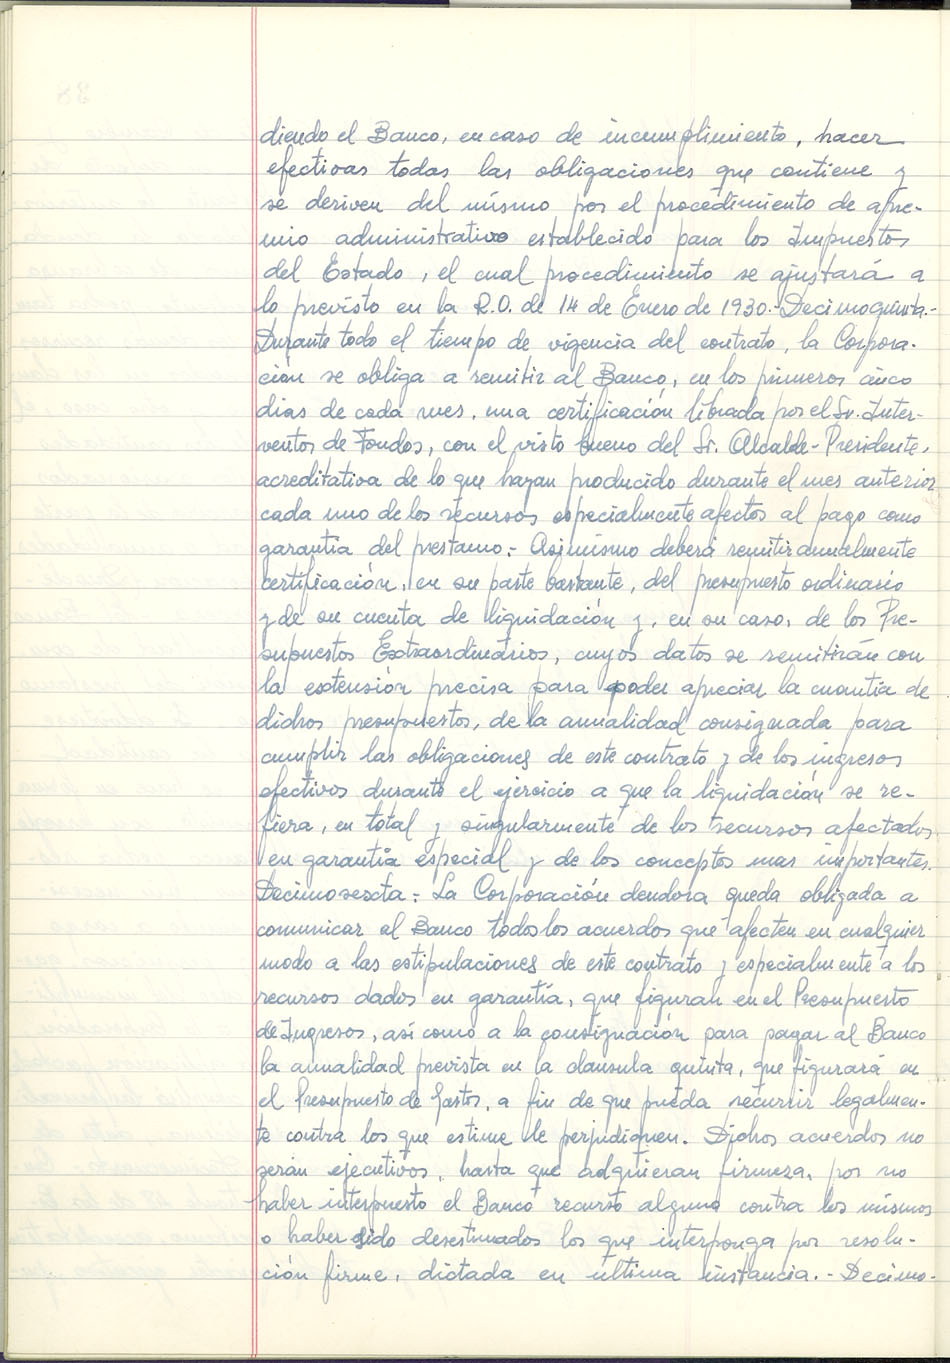 diendo el Banco, en caso de incumplimiento, hacer
efectivas todas las obligaciones que contiene y
se deriven del mismo por el procedimiento de apre-
mio administrativo establecido para los Impuestos
del Estado, el cual procedimiento se ajustará a
lo previsto en la R.O. de 14 de Enero de 1930.- Decimoquinta.-
Durante todo el tiempo de vigencia del contrato, la Corpora-
ción se obliga a remitir al Banco, en los primeros cinco
dias de cada mes, una certificación librada por el Sr. Inter-
ventor de Fondos, con el visto bueno del Sr. Alcalde-Presidente,
acreditativa de lo que hayan producido durante el mes anterior
cada uno de los recursos especialmente afectos al pago como
garantía del prestamo.- Asimismo deberá remitir anualmente
certificación, en su parte bastante, del presupuesto ordinario
y de su cuenta de liquidación y, en su caso, de los Pre-
supuestos Extraordinarios, cuyos datos se remitirán con
la extensión precisa para poder apreciar la cuantía de
dichos presupuestos, de la anualidad consignada para
cumplir las obligaciones de este contrato y de los ingresos
efectivos durante el ejercicio a que la liquidación se re-
fiera, en total y singularmente de los recursos afectados
en garantía especial y de los conceptos mas importantes.
Decimosexta.- La Corporación deudora queda obligada a
comunicar al Banco todos los acuerdos que afecten en cualquier
modo a las estipulaciones de este contrato y especialmente a los
recursos dados en garantía, que figuran en el Presupuesto
de Ingresos, así como a la consignación para pagar al Banco
la anualidad prevista en la clausula quinta, que figurará en
el Presupuesto de Gastos, a fin de que pueda recurrir legalmen-
te contra los que estime le perjudiquen. Dichos acuerdos no
serán ejecutivos, hasta que adquieran firmeza, por no
haber interpuesto el Banco recurso alguno contra los mismos
o haber sido desestimados los que interponga por resolu-
ción firme, dictada en última instancia.- Decimo-